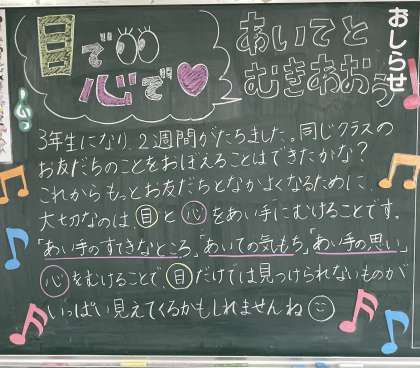 おしらせ
目で
心で
あいてと
むきあおう
3年生になり、2週間がたちました。同じクラスの
お友だちのことをおぼえることはできたかな？
これからもっとお友だちとなかよくなるために、
大切なのは、目と心をあい手にむけることです。
「あい手のすてきなところ」「あいての気もち」「あい手の思い」
心をむけることで、目だけでは見つけられないものが
いっぱい見えてくるかもしれませんね